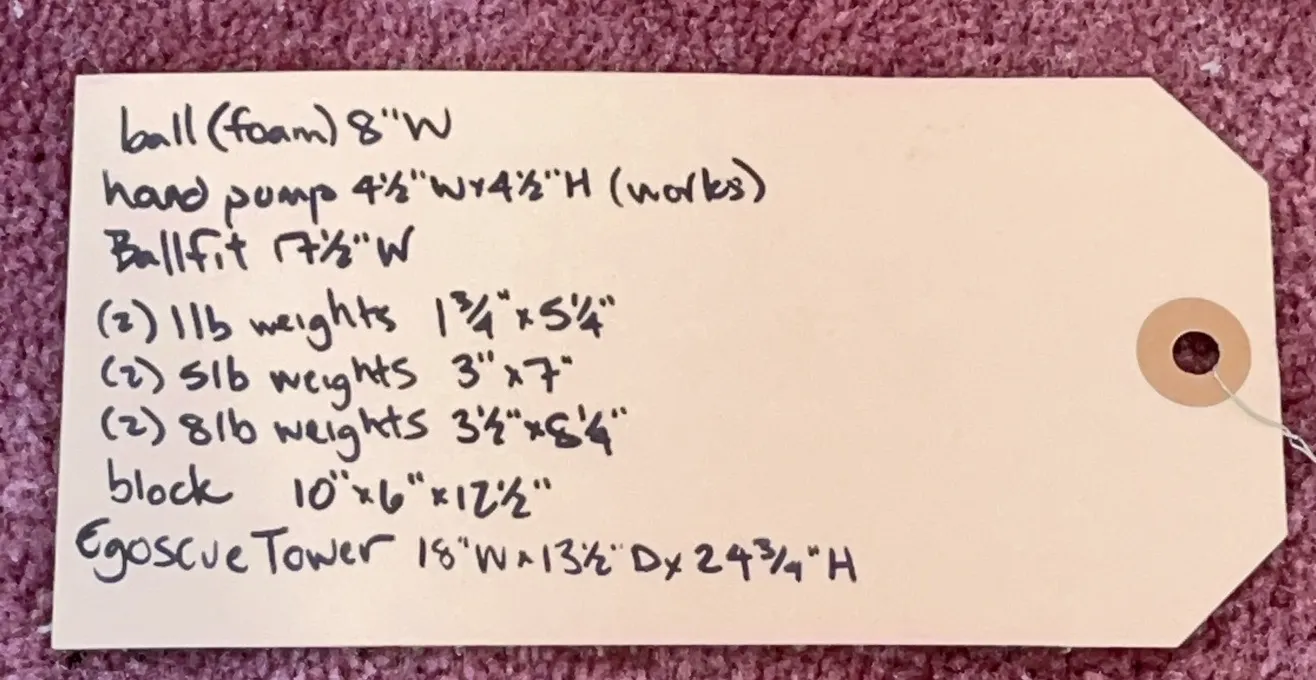 ball (foam) 8"W
hand pump 4½"W x 4½"H (works)
Ballfit 17½"W
(2) 1lb weights 1¾" x 5¼"
(2) 5lb weights 3" x 7"
(2) 8lb weights 3½" x 8¼"
block 10" x 6" x 12½"
Egoscue Tower 18"W x 13½"D x 24¾"H